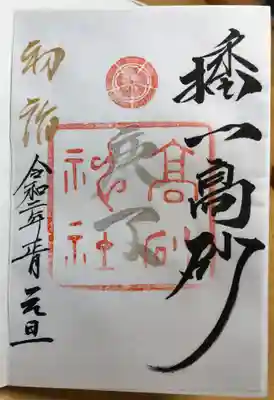 播一高砂
高砂神社
庚子
初詣
令和二年正月元旦